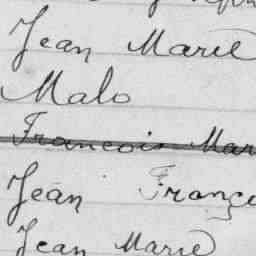 Jean Marie
Malo
Francois Mar
Jean Franço
Jean Marie